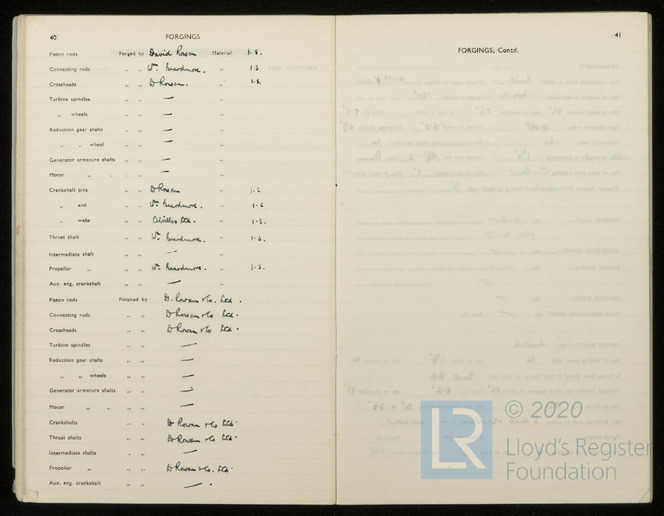 40
FORGINGS
Piston rods Forged by David Rowan Material I.S.
Connecting rods " " Wm. Beardmore. " I.S
Crossheads " " D Rowan. " I.S.
Turbine spindles " " — "
" wheels " " — "
Reduction gear shafts " " — "
" " wheel " " — "
Generator armature shafts " " — "
Motor " " " " — "
Crankshaft pins " " D Rowan " I.S.
" end " " Wm. Beardmore. " I.S.
" webs " " Colvilles Ltd. " I.S.
Thrust shaft " " Wm. Beardmore. " I.S.
Intermediate shaft " " — "
Propeller " " " Wm. Beardmore. " I.S.
Aux. eng. crankshaft " " — "
Piston rods Finished by D. Rowan & Co. Ltd.
Connecting rods " " D Rowan & Co Ltd.
Crossheads " " D Rowan & Co Ltd.
Turbine spindles " " —
Reduction gear shafts " " —
" " wheels " " —
Generator armature shafts " " —
Motor " " " " —
Crankshafts " " D Rowan & Co Ltd.
Thrust shafts " " D Rowan & Co Ltd.
Intermediate shafts " " —
Propeller " " " D Rowan & Co. Ltd.
Aux. eng. crankshaft " " —
41
FORGINGS, Contd.
LR
© 2020
Lloyd's Register
Foundation